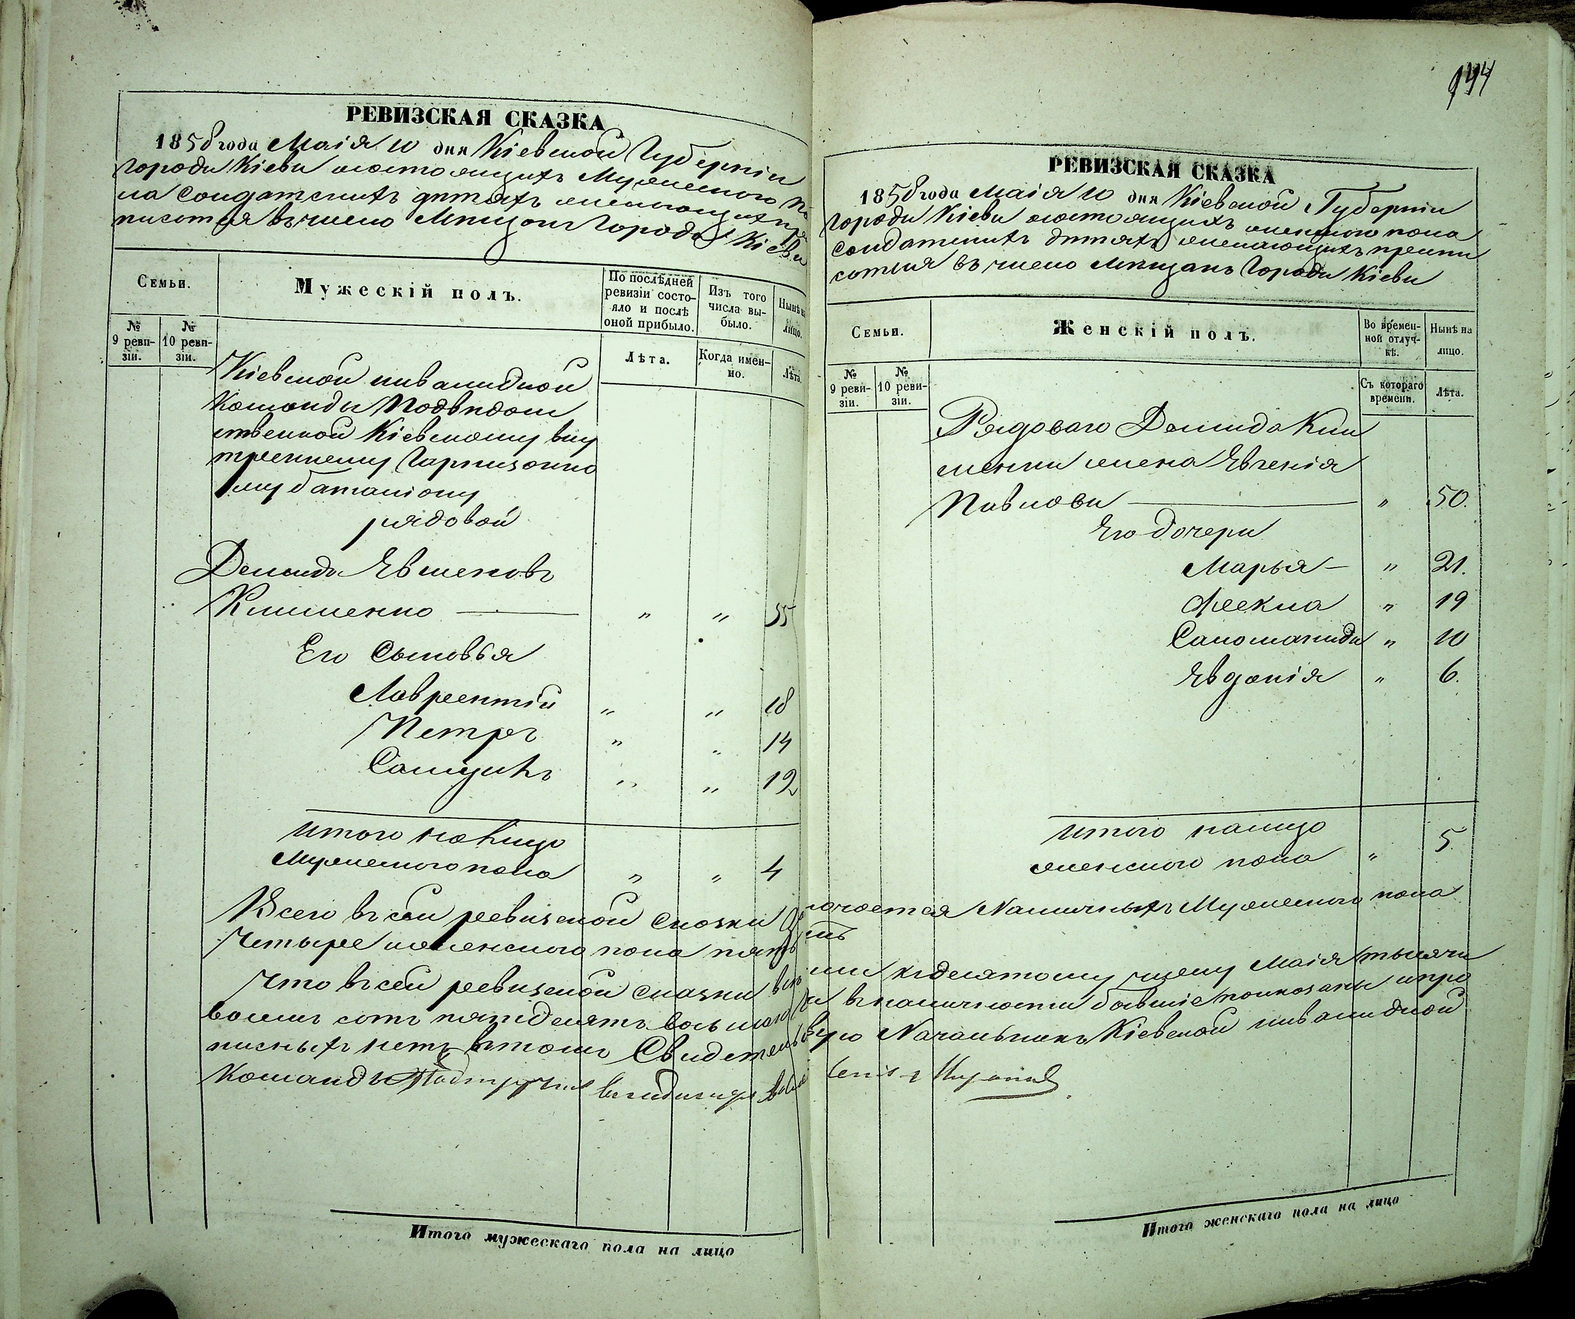 РЕВИЗСКАЯ СКАЗКА
1858 года Маія 10 дня Кіевской Губерніи
города Кіева о состоящихъ Мужескаго по
ла солдатскихъ дѣтяхъ желающихъ при
писаться въ число Мѣщанъ города Кіева
Семьи.
№ 9 ревизіи.
№ 10 ревизіи.
Мужескій полъ.
По послѣдней ревизіи состояло и послѣ оной прибыло.
Изъ того числа выбыло.
Нынѣ на лицо.
Лѣта.
Когда именно.
Лѣта.
Кіевской инвалидной
команды Подвѣдом
ственной Кіевскому вну
треннему Гарнизонно
му баталіону
рядовой
Демидъ Евменовъ
Клименко — „ „ 55
Его сыновья
Лаврентій „ „ 18
Петръ „ „ 14
Самуилъ „ „ 12
Итого на лицо
Мужескаго пола „ „ 4
144
РЕВИЗСКАЯ СКАЗКА
1858 года Маія 10 дня Кіевской Губерніи
города Кіева о состоящихъ женскаго пола
солдатскихъ дѣтяхъ желающихъ припи
саться въ число Мѣщанъ города Кіева
Семьи.
№ 9 ревизіи.
№ 10 ревизіи.
Женскій полъ.
Во временной отлучкѣ.
Нынѣ на лицо.
Съ котораго времени.
Лѣта.
Рядоваго Демида Кли
менка жена Евгенія
Павлова — „ 50.
Его дочери
Марья — „ 21.
Фекла „ 19
Саломанида „ 10
Евдокія „ 6.
Итого налицо
женскаго пола „ 5
Всего въ сей ревизской сказки наличныхъ Мужескаго пола
Четыре и женскаго пола пять
Что въ сей ревизской сказки всѣ къ десятому числу Маія тысяча
восемь сотъ пятьдесятъ восьмаго года въ наличности бывшіе показаны и про
писныхъ нетъ въ томъ Свидетельствую Начальникъ Кіевской инвалидной
Команды
Итого мужескаго пола на лицо
Итого женскаго пола на лицо